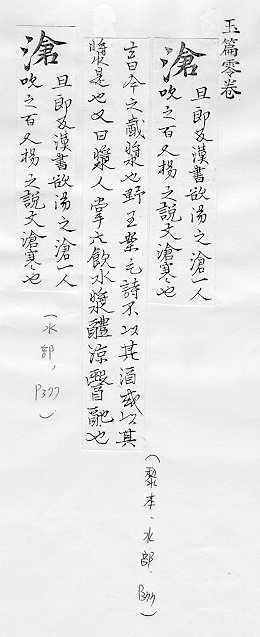 玉篇零卷
滄
且即反漢書欲湯之滄一人
吹之百人揚之說文滄寒也
言曰今之胾漿也野王案毛詩不以其酒或以其
漿是也又曰漿人掌六飲水漿醴涼醫酏也
（黎本．水部．P377）
滄
且即反漢書欲湯之滄一人
吹之百人揚之說文滄寒也
（水部．P377）